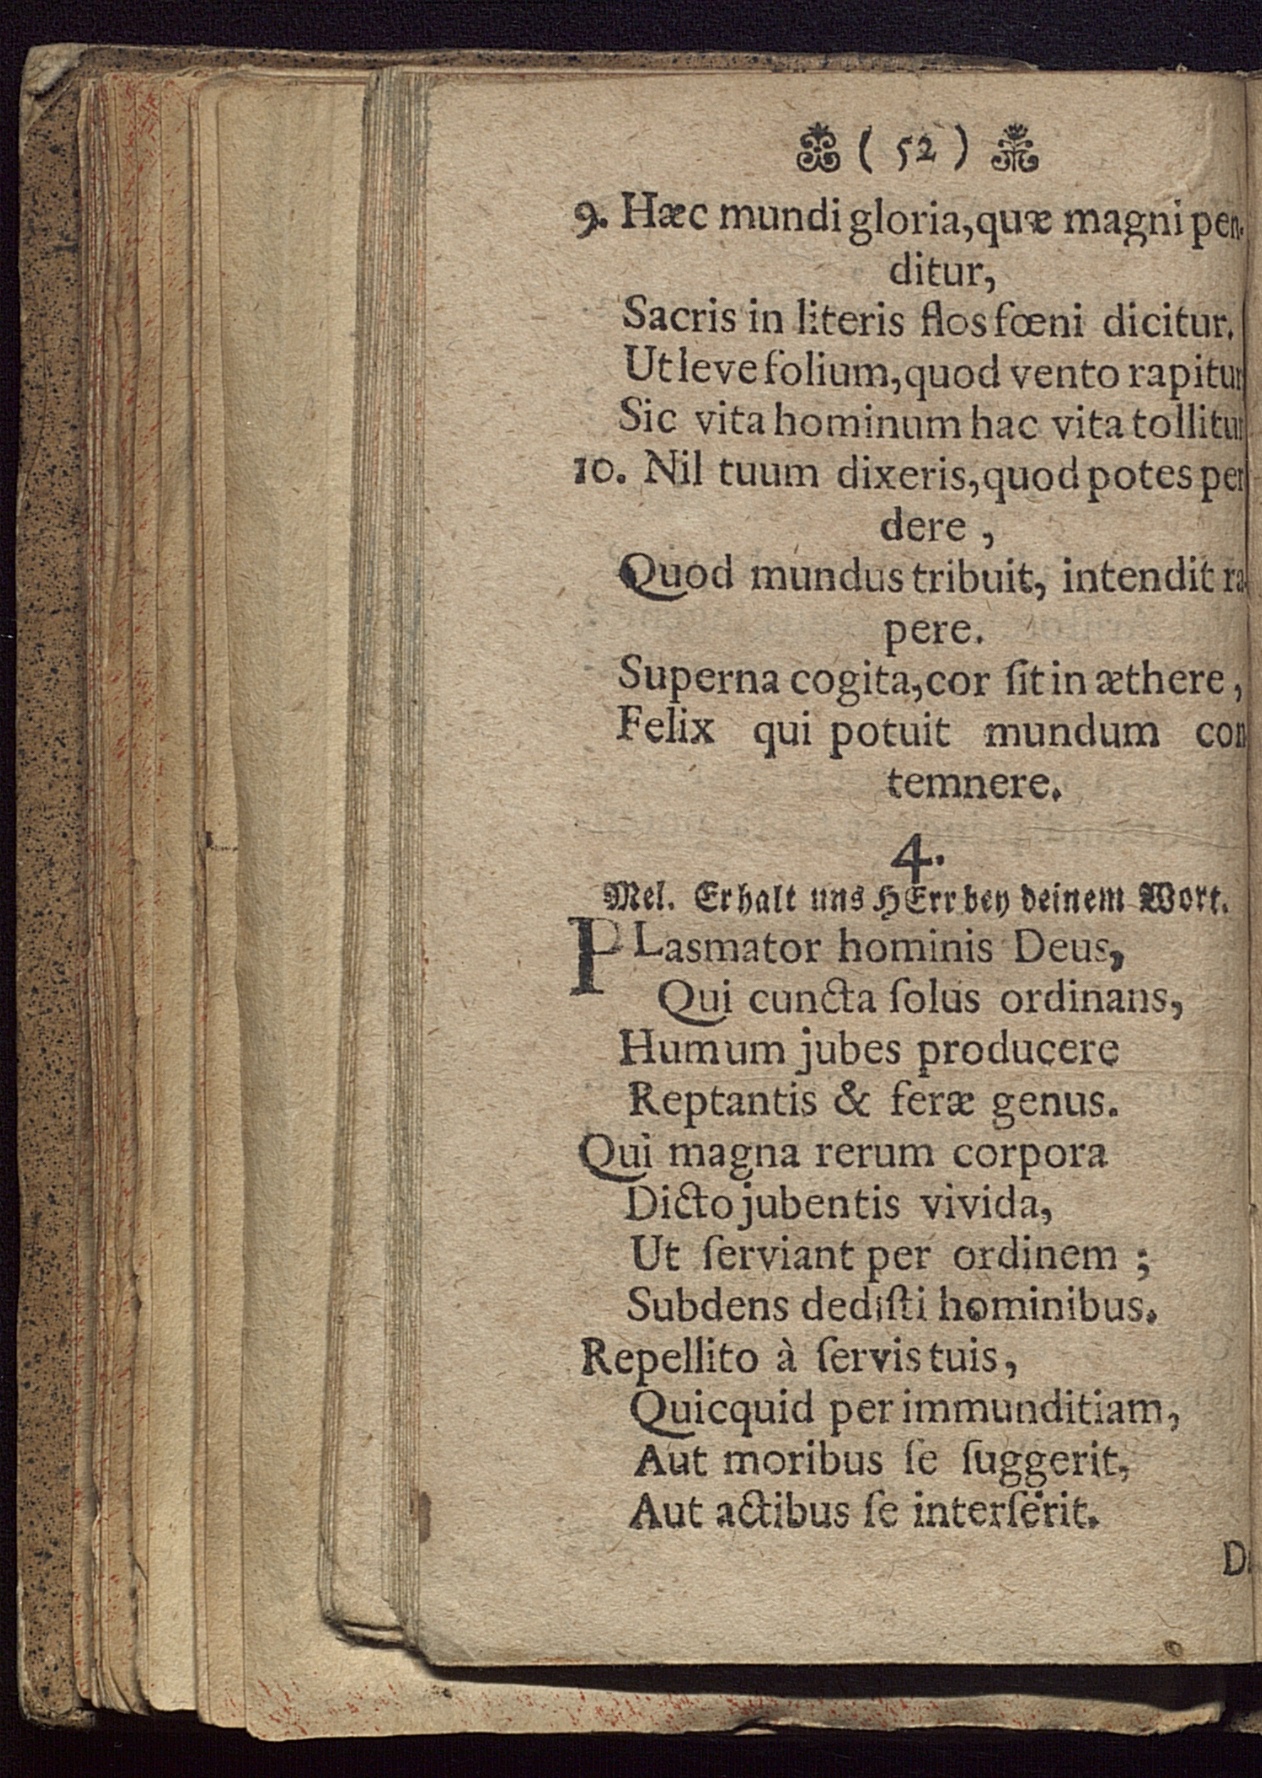 ( 52 )
9. Hæc mundi gloria, quæ magni pen-
ditur,
Sacris in literis flos fœni dicitur.
Ut leve folium, quod vento rapitur
Sic vita hominum hac vita tollitur
10. Nil tuum dixeris, quod potes per
dere ,
Quod mundus tribuit, intendit ra
pere.
Superna cogita, cor ſit in æthere ,
Felix qui potuit mundum con
temnere.
4.
Mel. Erhalt uns HErr bey deinem Wort.
PLasmator hominis Deus,
Qui cuncta ſolus ordinans,
Humum jubes producere
Reptantis & feræ genus.
Qui magna rerum corpora
Dicto jubentis vivida,
Ut ſerviant per ordinem ;
Subdens dediſti hominibus.
Repellito à ſervis tuis ,
Quicquid per immunditiam,
Aut moribus ſe ſuggerit,
Aut actibus ſe interſerit.